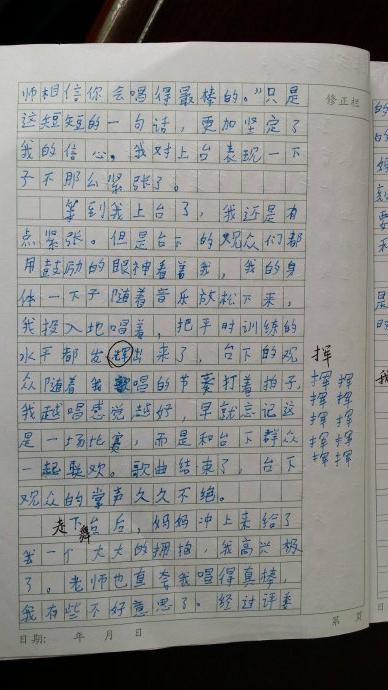 师相信你会唱得最棒的。"只是
修正栏
这短短的一句话，更加坚定了
我的信心。我对上台表现一下
子不那么紧张了。
等到我上台了，我还是有
点紧张。但是台下的观众们都
用鼓励的眼神看着我，我的身
体一下子随着音乐放松下来，
我投入地唱着，把平时训练的
水平都发挥出来了，台下的观
挥
众随着我歌唱的节奏打着拍子，
挥 挥
我越唱感觉越好，早就忘记这
挥 挥
是一场比赛，而是和台下群众
挥 挥
一起联欢。歌曲结束了，台下
挥 挥
观众的掌声久久不绝。
挥 挥
走下舞台后，妈妈冲上来给了
我一个大大的拥抱，我高兴极
了。老师也直夸我唱得真棒，
我有些不好意思了。经过评委
日期： 年 月 日
第 页